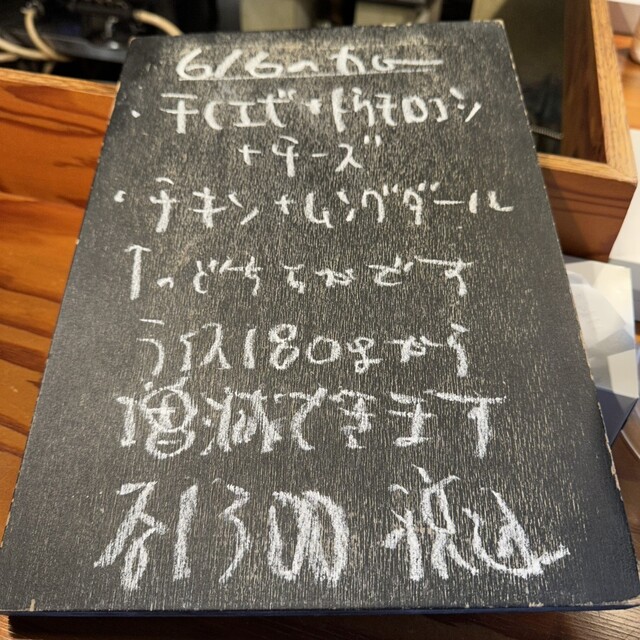 6/6のカレー
・干しエビ+トウモロコシ
+チーズ
・チキン+ムングダール
↑のどちらかです
ライス180gから
増減できます
各1300 税込